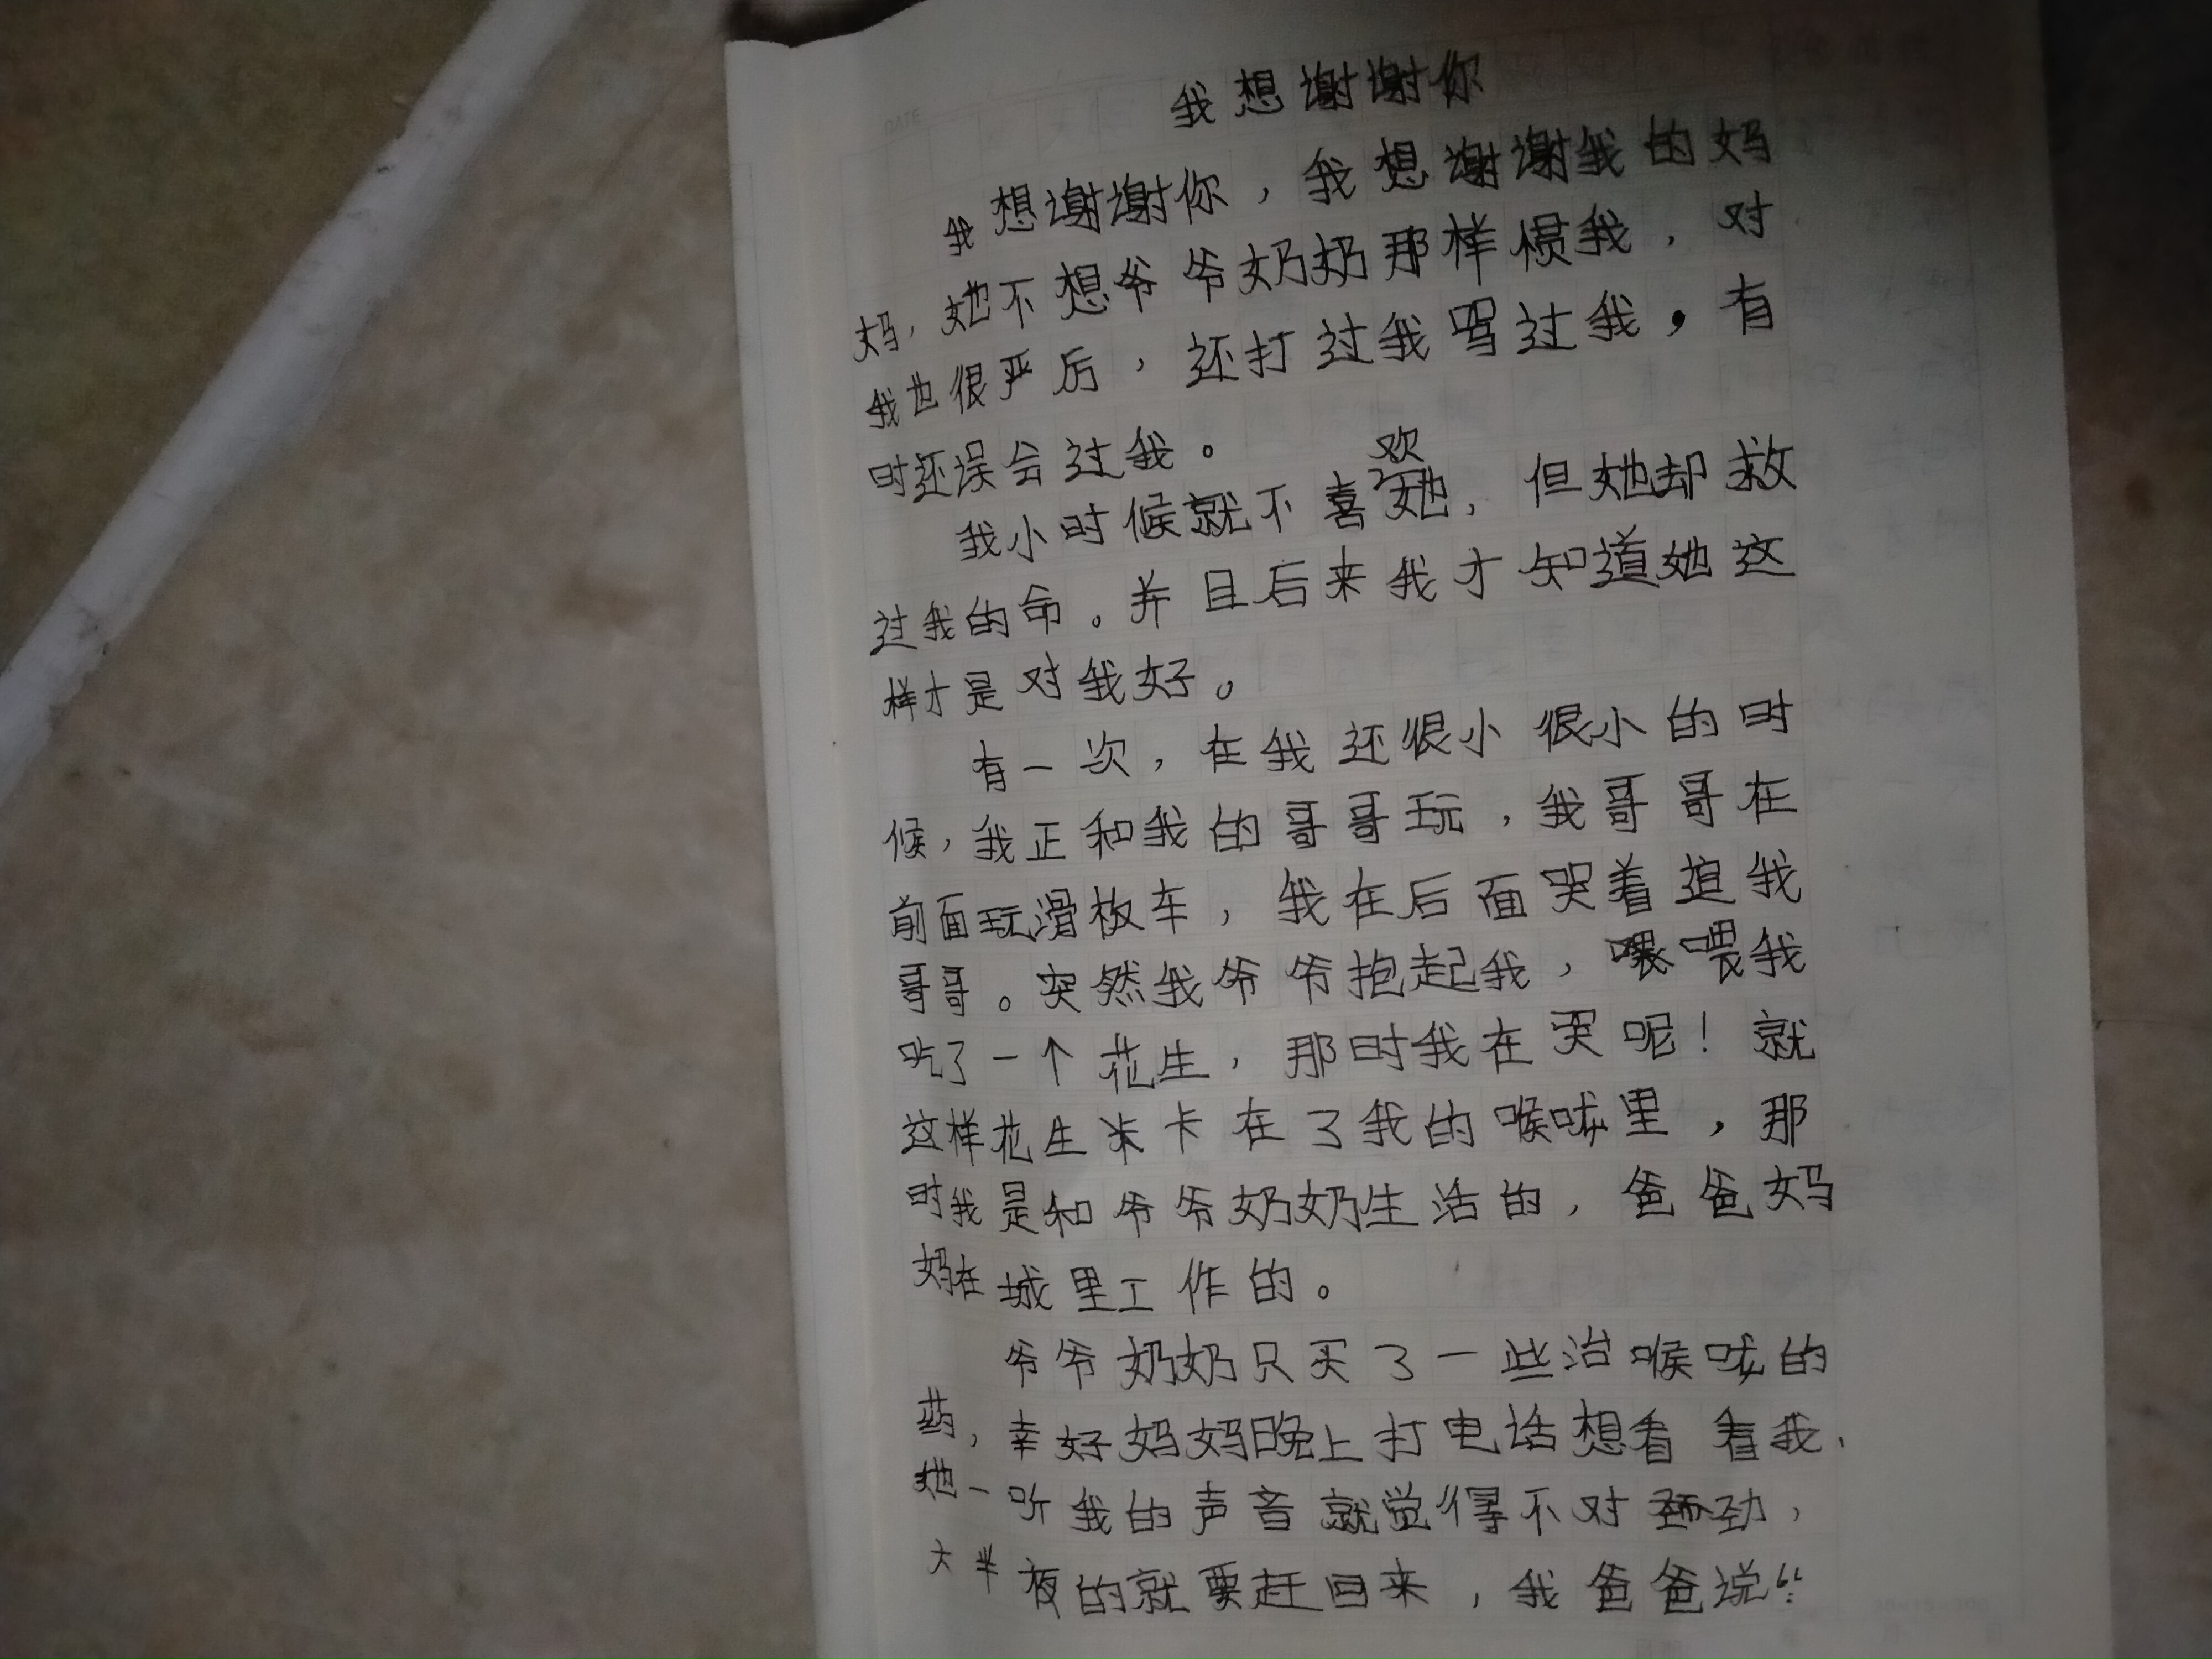 我想谢谢你
我想谢谢你，我想谢谢我的妈
妈，她不想爷爷奶奶那样惯我，对
我也很严厉，还打过我骂过我，有
时还误会过我。
我小时候就不喜欢她，但她却救
过我的命。并且后来我才知道她这
样才是对我好。
有一次，在我还很小很小的时
候，我正和我的哥哥玩，我哥哥在
前面玩滑板车，我在后面哭着追我
哥哥。突然我爷爷抱起我，喂我
吃了一个花生，那时我在哭呢！就
这样花生米卡在了我的喉咙里，那
时我是和爷爷奶奶生活的，爸爸妈
妈在城里工作的。
爷爷奶奶只买了一些治喉咙的
药，幸好妈妈晚上打电话想看看我，
她一听我的声音就觉得不对劲，
大半夜的就要赶回来，我爸爸说：“